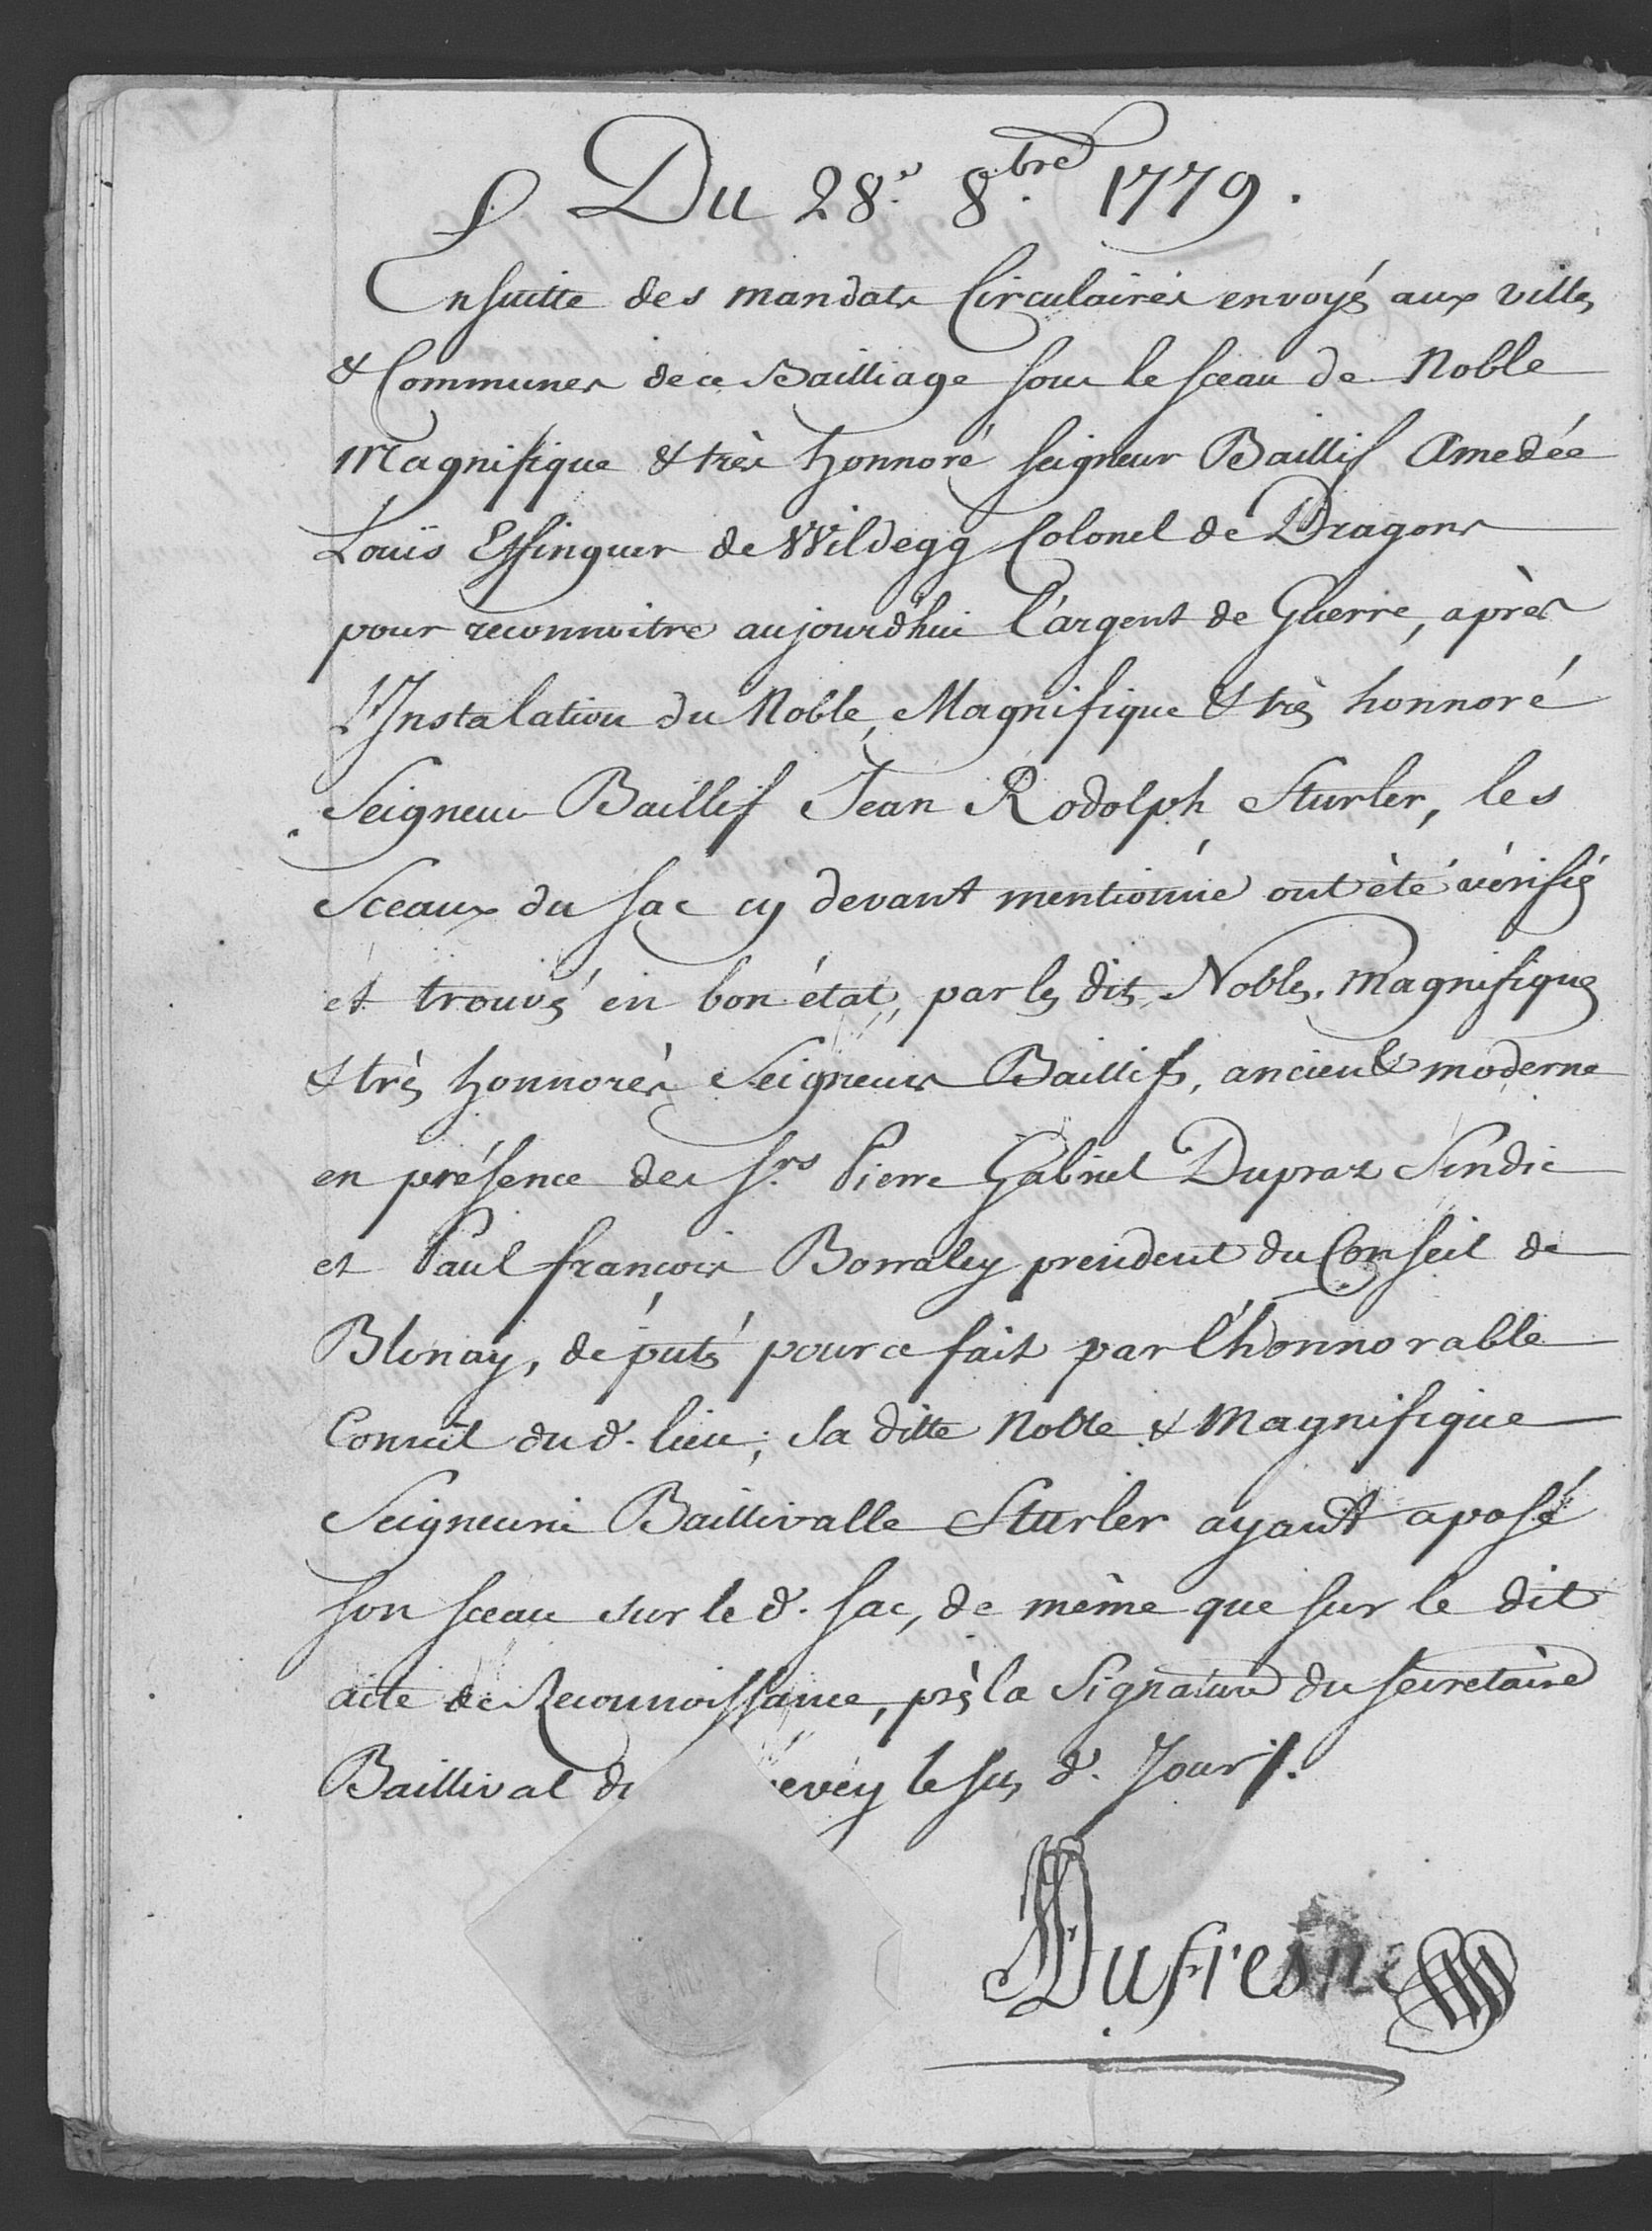 Du 28.e 8.bre 1779.
Ensuitte des mandats Circulaires envoyés aux villes
& Communes de ce Bailliage sous le sceau de Noble
Magnifique & très honnoré seigneur Baillif Amedée
Louïs Effinguer de Wildegg Colonel de Dragons
pour reconnoitre aujourd'hui l'argent de Guerre, après
L'Instalation du Noble, Magnifique & très honnoré
Seigneur Baillif Jean Rodolph Sturler, les
Sceaux du sac cy devant mentionné ont été vérifiés
et trouvés en bon état, par les dits Nobles, Magnifiques
& très honnorés Seigneurs Baillifs, ancien & moderne
en présence des S.rs Pierre Gabriel Dupraz Sindic
et Paul françois Bonjaley président du Conseil de
Blonay, députés pour ce fait par l'honnorable
Conseil du d. lieu; sa ditte Noble & Magnifique
Seigneurie Baillivalle Sturler ayant aposé
son sceau sur le d. sac, de même que sur le dit
acte de Reconnoissance, près la Signature du secretaire
Baillival de vevey le sus d. Jour.
Dufresne